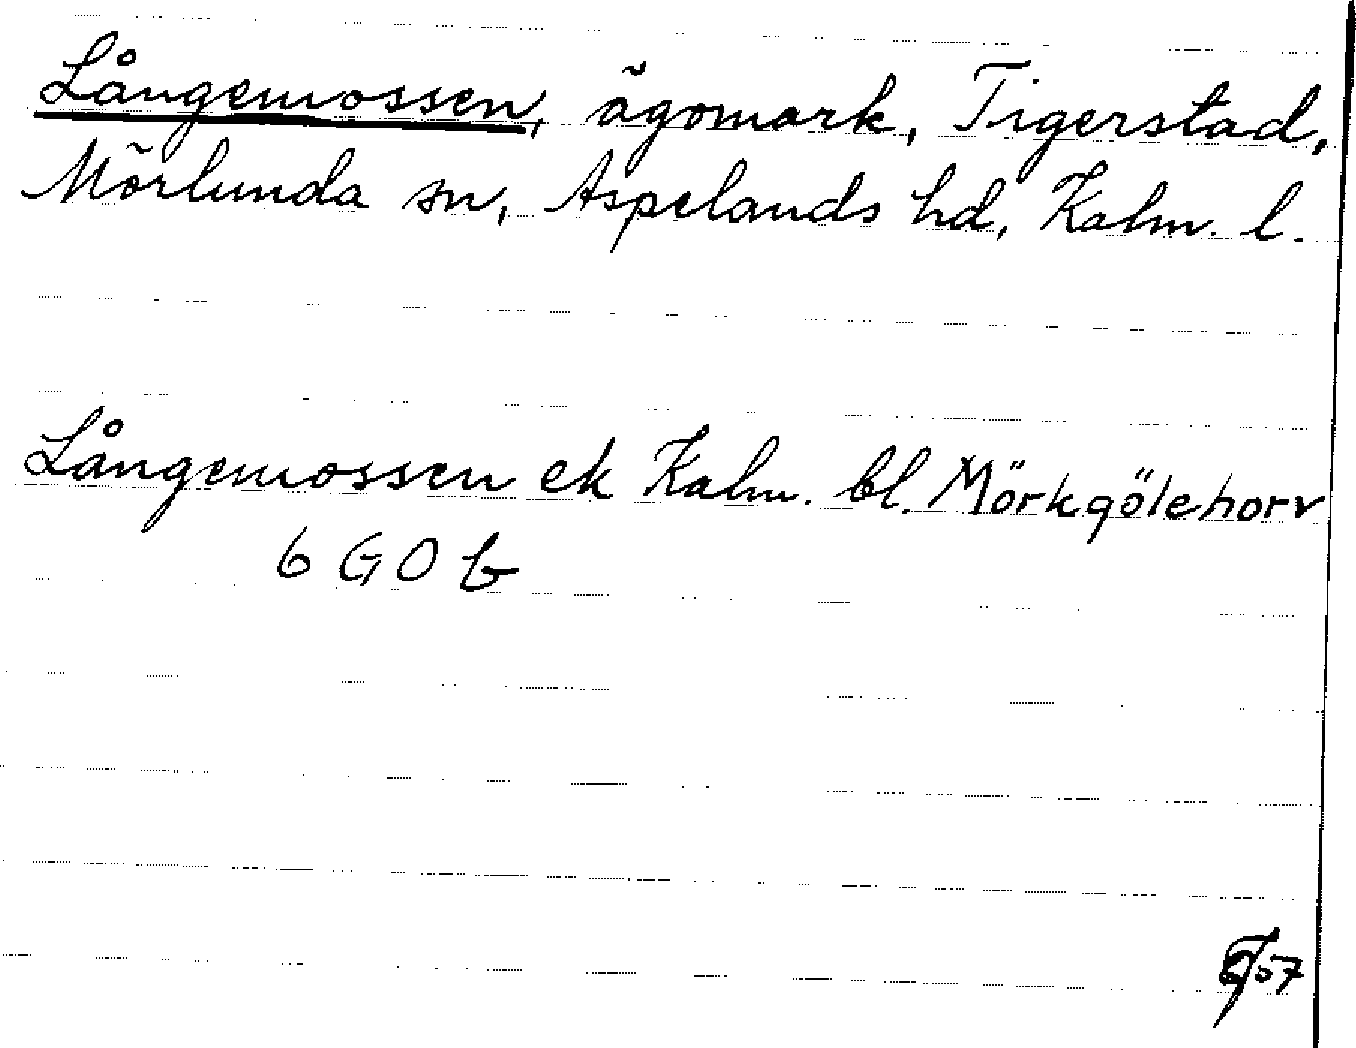 Långemossen, ägomark, Tigerstad,
Mörlunda sn, Aspelands hd, Kalm. l.
Långemossen ek Kalm. bl. Mörkgölehorv
6 G O b
57